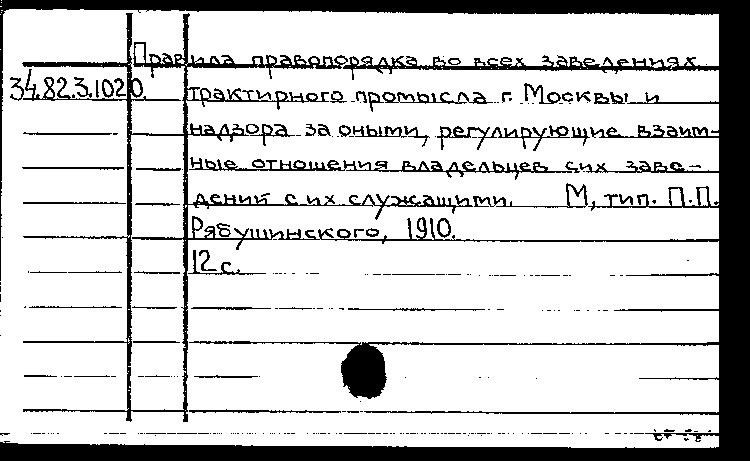 Правила правопорядка во всех заведениях
34.82.3.1020. трактирного промысла г. Москвы и
надзора за оными, регулирующие взаим-
ные отношения владельцев сих заве-
дений с их служащими. М, тип. П.П.
Рябушинского, 1910.
12 с.